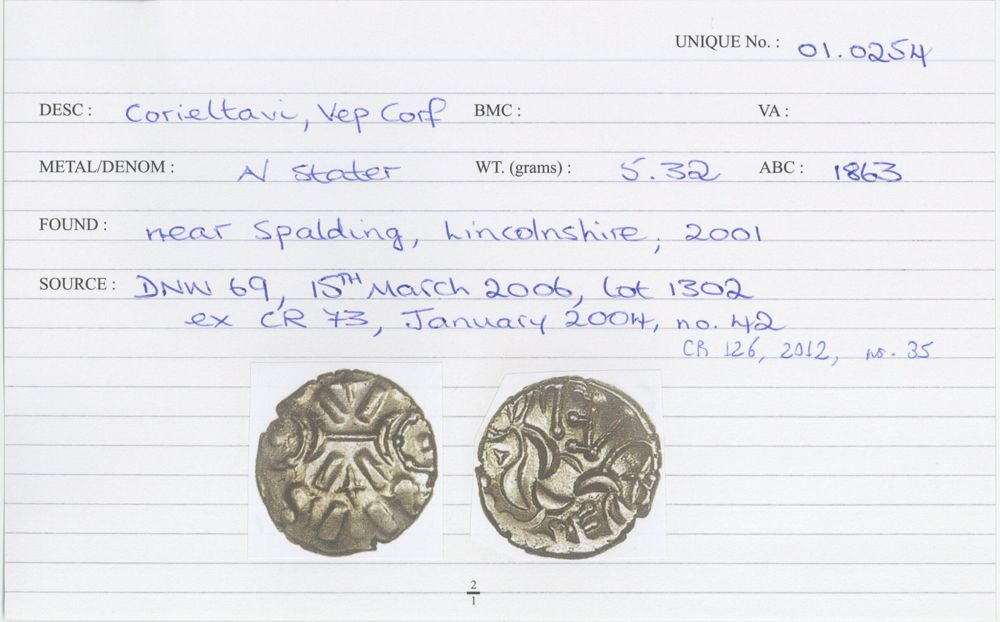 UNIQUE No. : 01.0254
DESC : Corieltavi, Vep Corf BMC : VA :
METAL/DENOM : N Stater WT. (grams) : 5.32 ABC : 1863
FOUND : near Spalding, Lincolnshire, 2001
SOURCE : DNW 69, 15TH March 2006, lot 1302
ex CR 73, January 2004, no. 42
CR 126, 2012, no. 35
2
1